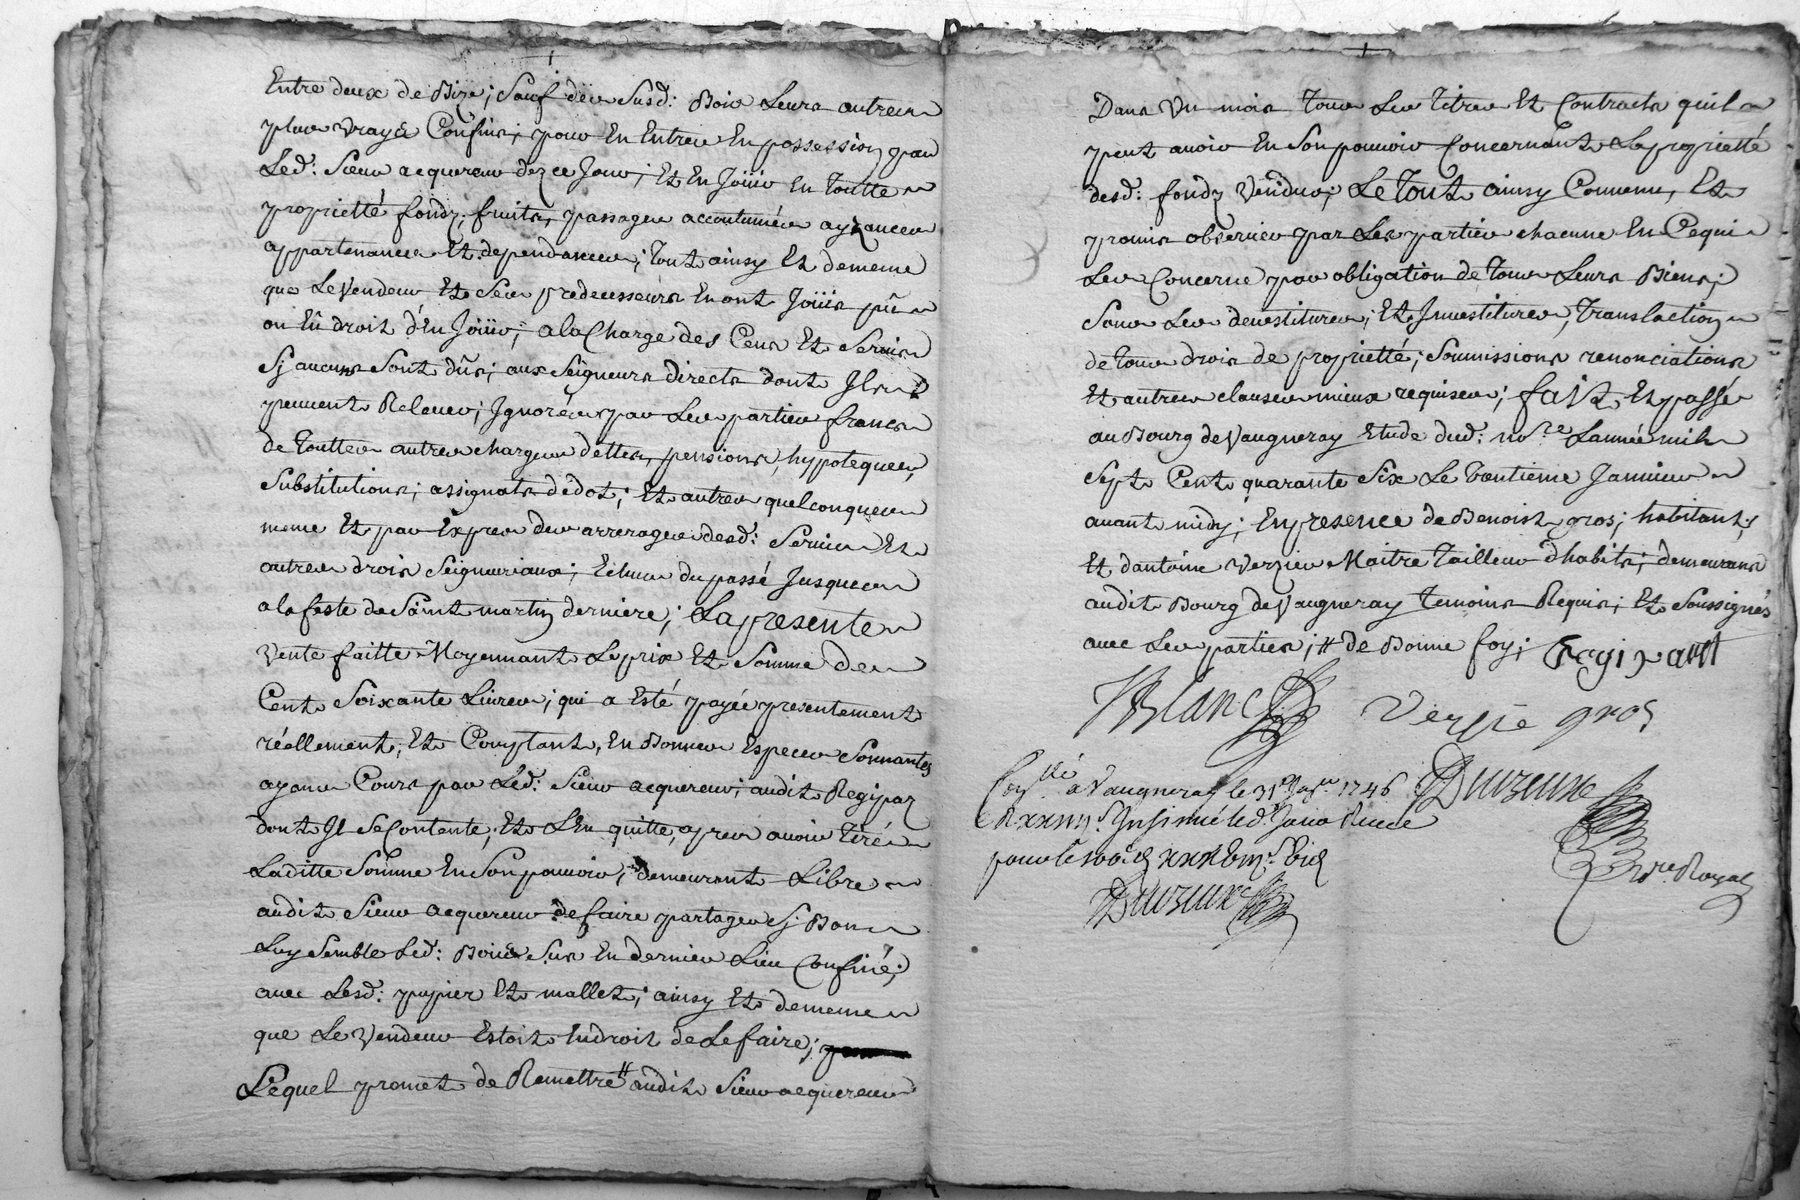 Entre deux de Bize; Sauf des Susd: Bois Leurs autres
plus vrays Confins; pour En Entrer En possession par
Led: Sieur acquereur dez ce Jour; Et En Joüir En toutte
proprietté fondz, fruits, passages accoutumés ayzances
appartenances Et dependances; tout ainsy Et de meme
que Le Vendeur Et Ses predecesseurs En ont Joüis pû
ou Eû droit d'En Joüir; a la Charge des Cens Et Servis
Sj aucuns Sont dûs; aux Seigneurs directs dont Ils
peuvent Relever; Ignorés par Les parties francs
de Touttes autres charges dettes, pensions, hypoteques,
Substitutions; assignats de dot; Et autres quelconques
meme Et par Expres des arrerages desd: Servis Et
autres droits Seigneuriaux; Echus du passé Jusques
a la feste de Saint martin derniere; La presente
Vente faitte Moyennant Le prix Et Somme de
Cent Soixante Livres; qui a Esté payée presentement
réellement, Et Comptant, En Bonnes Especes Sonnantes
ayant Cours par Led: Sieur acquereur; audit Regipas
dont Il Se Contente, Et L'En quitte, apres avoir tiré
Laditte Somme En Son pouvoir; demeurant Libre
audit Sieur acquereur de faire partager Sj Bon
Luy Semble Led: Bois Sus En dernier Lieu Confiné;
avec Lesd: papier Et mallet; ainsy Et de meme
que Le Vendeur Estoit Endroit de Le faire;
Lequel promet de Remettre # audit Sieur acquereur
Dans Un mois Tous Les Titres Et Contracts quil
peut avoir En Son pouvoir Concernant La proprietté
desd: fondz Vendus; Le Tout ainsy Convenu, Et
promis observer par Les parties chacune En Cequi
Les Concerne par obligation de Tous Leurs Biens;
Sous Les devestitures, Et Investitures, Translation
de tous droits de proprietté; Soumissions renonciations
Et autres clauses mieux requises; fait, Et passé
au Bourg de Vaugneray Etude dud: no.re L'année mil
Sept Cent quarante Six Le trentieme Janvier
avant midy; En presence de Benoist gros; habitant,
Et d'antoine Verzier Maitre Tailleur d'habits; demeurans
audit Bourg de Vaugneray Temoins Requis; Et Soussignés
avec Les parties; # de Bonne foy;
Blanc Verzie gros
à Vaugneray le 31e 1746 Duvzeuxe
Insinué led. Jour
Duvzeuxe
Re Royal